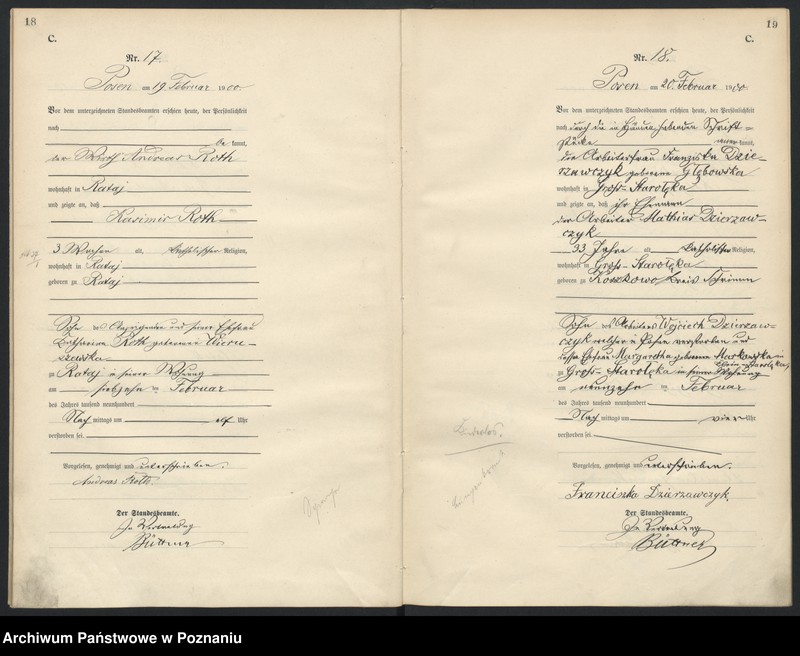 18
C.
Nr. 17.
Posen am 19. Februar 1900.
Vor dem unterzeichneten Standesbeamten erschien heute, der Persönlichkeit
nach
be kannt,
der Andreas Roth
wohnhaft in Rataj
und zeigte an, daß
Kasimir Roth
3 Wochen alt, katholischer Religion,
wohnhaft in Rataj
geboren zu Rataj
Sohn des Anzeigenden und seiner Ehefrau
Roth geborenen
zu Rataj in seiner Wohnung
am siebzehn ten Februar
des Jahres tausend neunhundert
Nach mittags um elf Uhr
verstorben sei.
Vorgelesen, genehmigt und unterschrieben.
Andreas Roth
Der Standesbeamte.
In Vertretung
Büttner
19
C.
Nr. 18.
Posen am 20. Februar 1900
Vor dem unterzeichneten Standesbeamten erschien heute, der Persönlichkeit
nach durch die in Händen habenden Schrift=
stücke kannt,
die Arbeiterfrau Franziska Dzie-
rzawczyk geborene Głębowska
wohnhaft in Gross-Starolęka
und zeigte an, daß ihr Ehemann
der Arbeiter Mathias Dzierzaw-
czyk
33 Jahre alt, katholischer Religion,
wohnhaft in Gross-Starolęka
geboren zu Kreis Schrimm
Sohn des Arbeiters Wojciech Dzierzaw-
czyk welcher in Posen verstorben und
dessen Ehefrau Margaretha geborenen Markowska in
Klein-Starolęka,
zu Gross-Starolęka in seiner Wohnung
am neunzehn ten Februar
des Jahres tausend neunhundert
Nach mittags um vier Uhr
verstorben sei.
Vorgelesen, genehmigt und unterschrieben.
Franciszka Dziarzawczyk.
Der Standesbeamte.
In Vertretung
Büttner
Archiwum Państwowe w Poznaniu